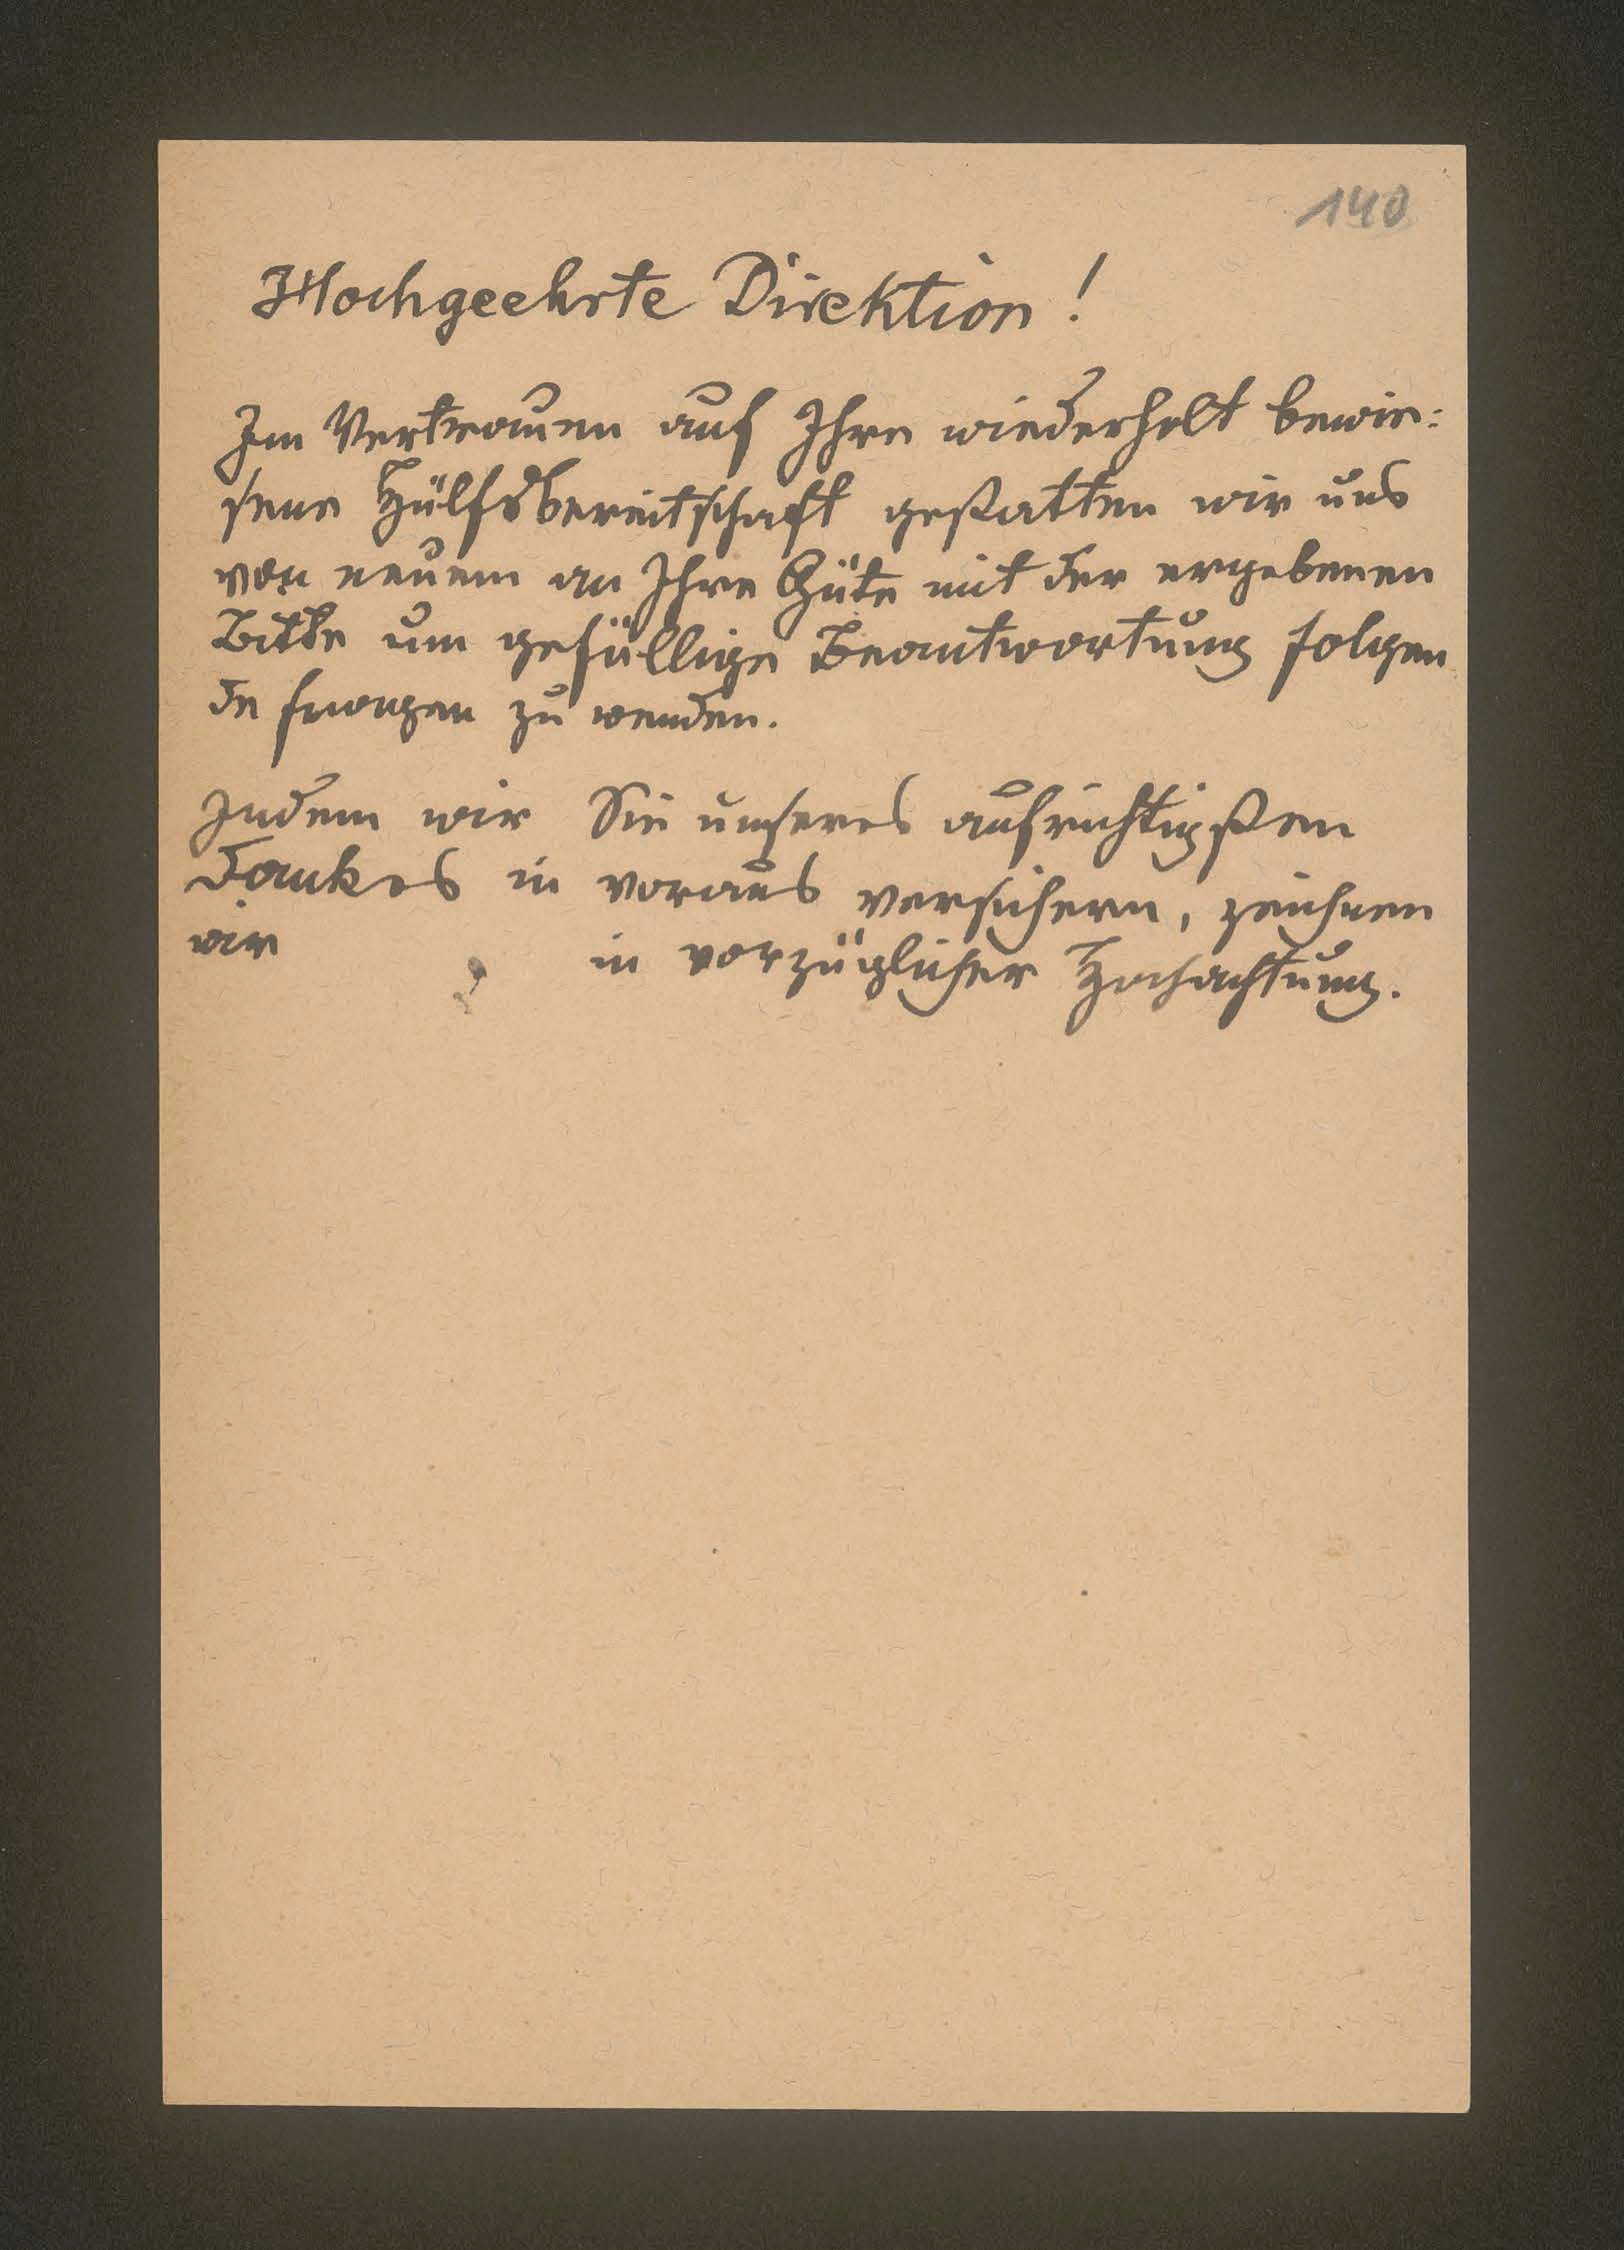 140
Hochgeehrte Direktion!
Im Vertrauen auf Ihre wiederholt bewie:
sene Hülfsbereitschaft gestatten wir uns
von neuem an Ihre Güte mit der ergebenen
Bitte um gefällige Beantwortung folgen
de Fragen zu wenden.
Indem wir Sie unseres aufrichtigsten
Dankes in voraus versichern, zeichnen
wir in vorzüglicher Hochachtung.